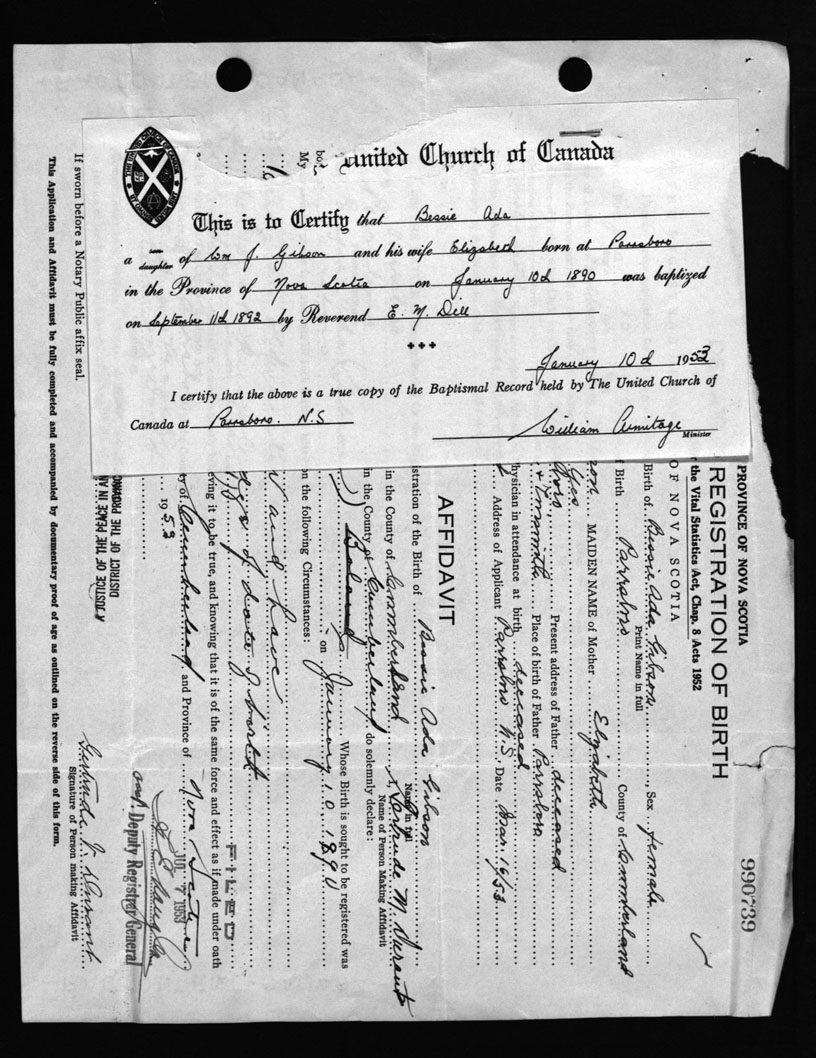 United Church of Canada
This is to Certify that Bessie Ada
a son daughter of Wm J. Gibson and his wife Elizabeth born at Parrsboro
in the Province of Nova Scotia on January 10d 1890 was baptized
on September 11d 1892 by Reverend E. M. Dill
January 10d 1953
I certify that the above is a true copy of the Baptismal Record held by The United Church of
Canada at Parrsboro. N.S
William Armitage
Minister
990739
PROVINCE OF NOVA SCOTIA
REGISTRATION OF BIRTH
the Vital Statistics Act, Chap. 8 Acts 1952
OF NOVA SCOTIA
Birth of Bessie Ada Gibson, Sex female
Print Name in full
f Birth Parrsboro County of Cumberland
MAIDEN NAME of Mother Elizabeth
Yes
Present address of Father deceased
Place of birth of Father Parrsboro
hysician in attendance at birth deceased
Address of Applicant Parrsboro N.S. Date Mar. 19/53
AFFIDAVIT
stration of the Birth of Bessie Ada Gibson
Name in full
in the County of Cumberland Gertrude M. Durant
Name of Person Making Affidavit
in the County of Cumberland do solemnly declare:
Whose Birth is sought to be registered was
on January 10 1890
on the following Circumstances:
and have
of date of birth
FILED
eving it to be true, and knowing that it is of the same force and effect as if made under oath
ty of Cumberland and Province of Nova Scotia
1953
7 1953
Deputy Registrar General
JUSTICE OF THE PEACE IN AN
DISTRICT OF THE PROVINC
Gertrude Durant
Signature of Person making Affidavit
If sworn before a Notary Public affix seal.
This Application and Affidavit must be fully completed and accompanied by documentary proof of age as outlined on the reverse side of this form.